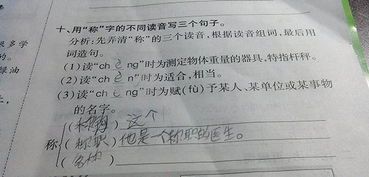 十、用“称”字的不同读音写三个句子。
分析:先弄清“称”的三个读音,根据读音组词,最后用
词造句。
(1)读“ch ng”时为测定物体重量的器具,特指杆秤。
(2)读“ch n”时为适合,相当。
(3)读“ch ng”时为赋(fù)予某人、某单位或某事物
的名字。
( ) 这个
称 (称职) 他是一个称职的医生。
(名称)
很多学
的。
绿油